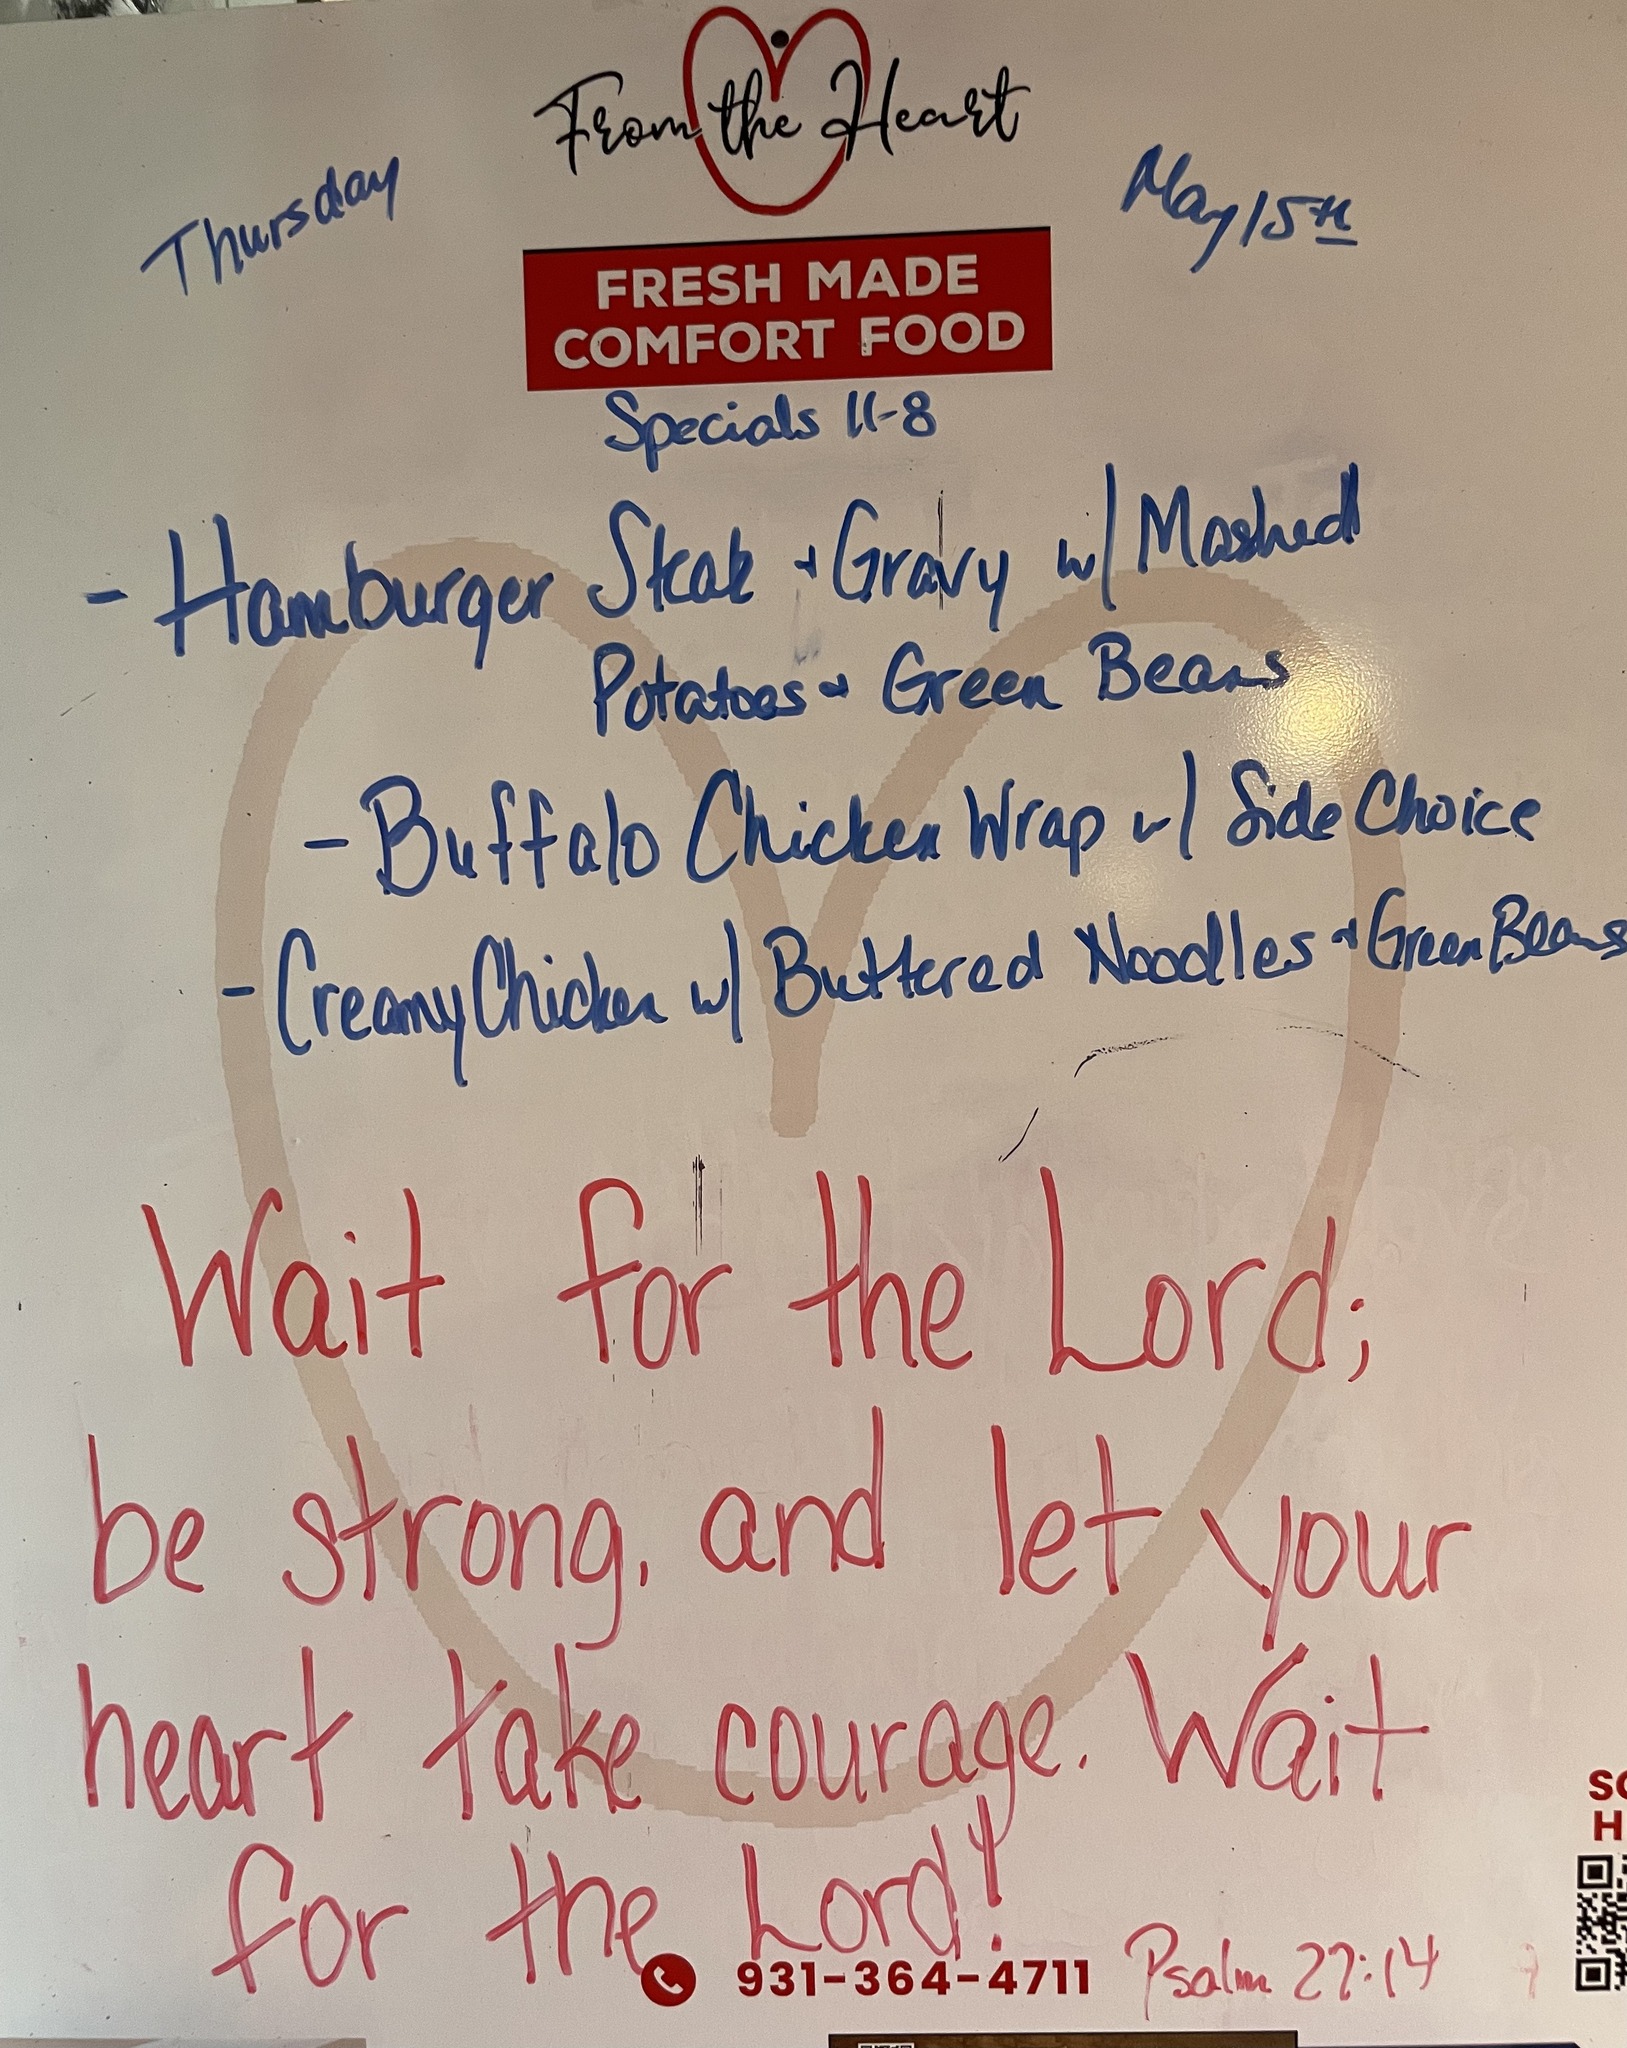 From the Heart
Thursday
May 15th
FRESH MADE
COMFORT FOOD
Specials 11-8
- Hamburger Steak + Gravy w/ Mashed
Potatoes + Green Beans
- Buffalo Chicken Wrap w/ Side Choice
- Creamy Chicken w/ Buttered Noodles + Green Beans
Wait for the Lord;
be strong, and let your
heart take courage. Wait
for the Lord!
931-364-4711
Psalm 27:14
SC
H